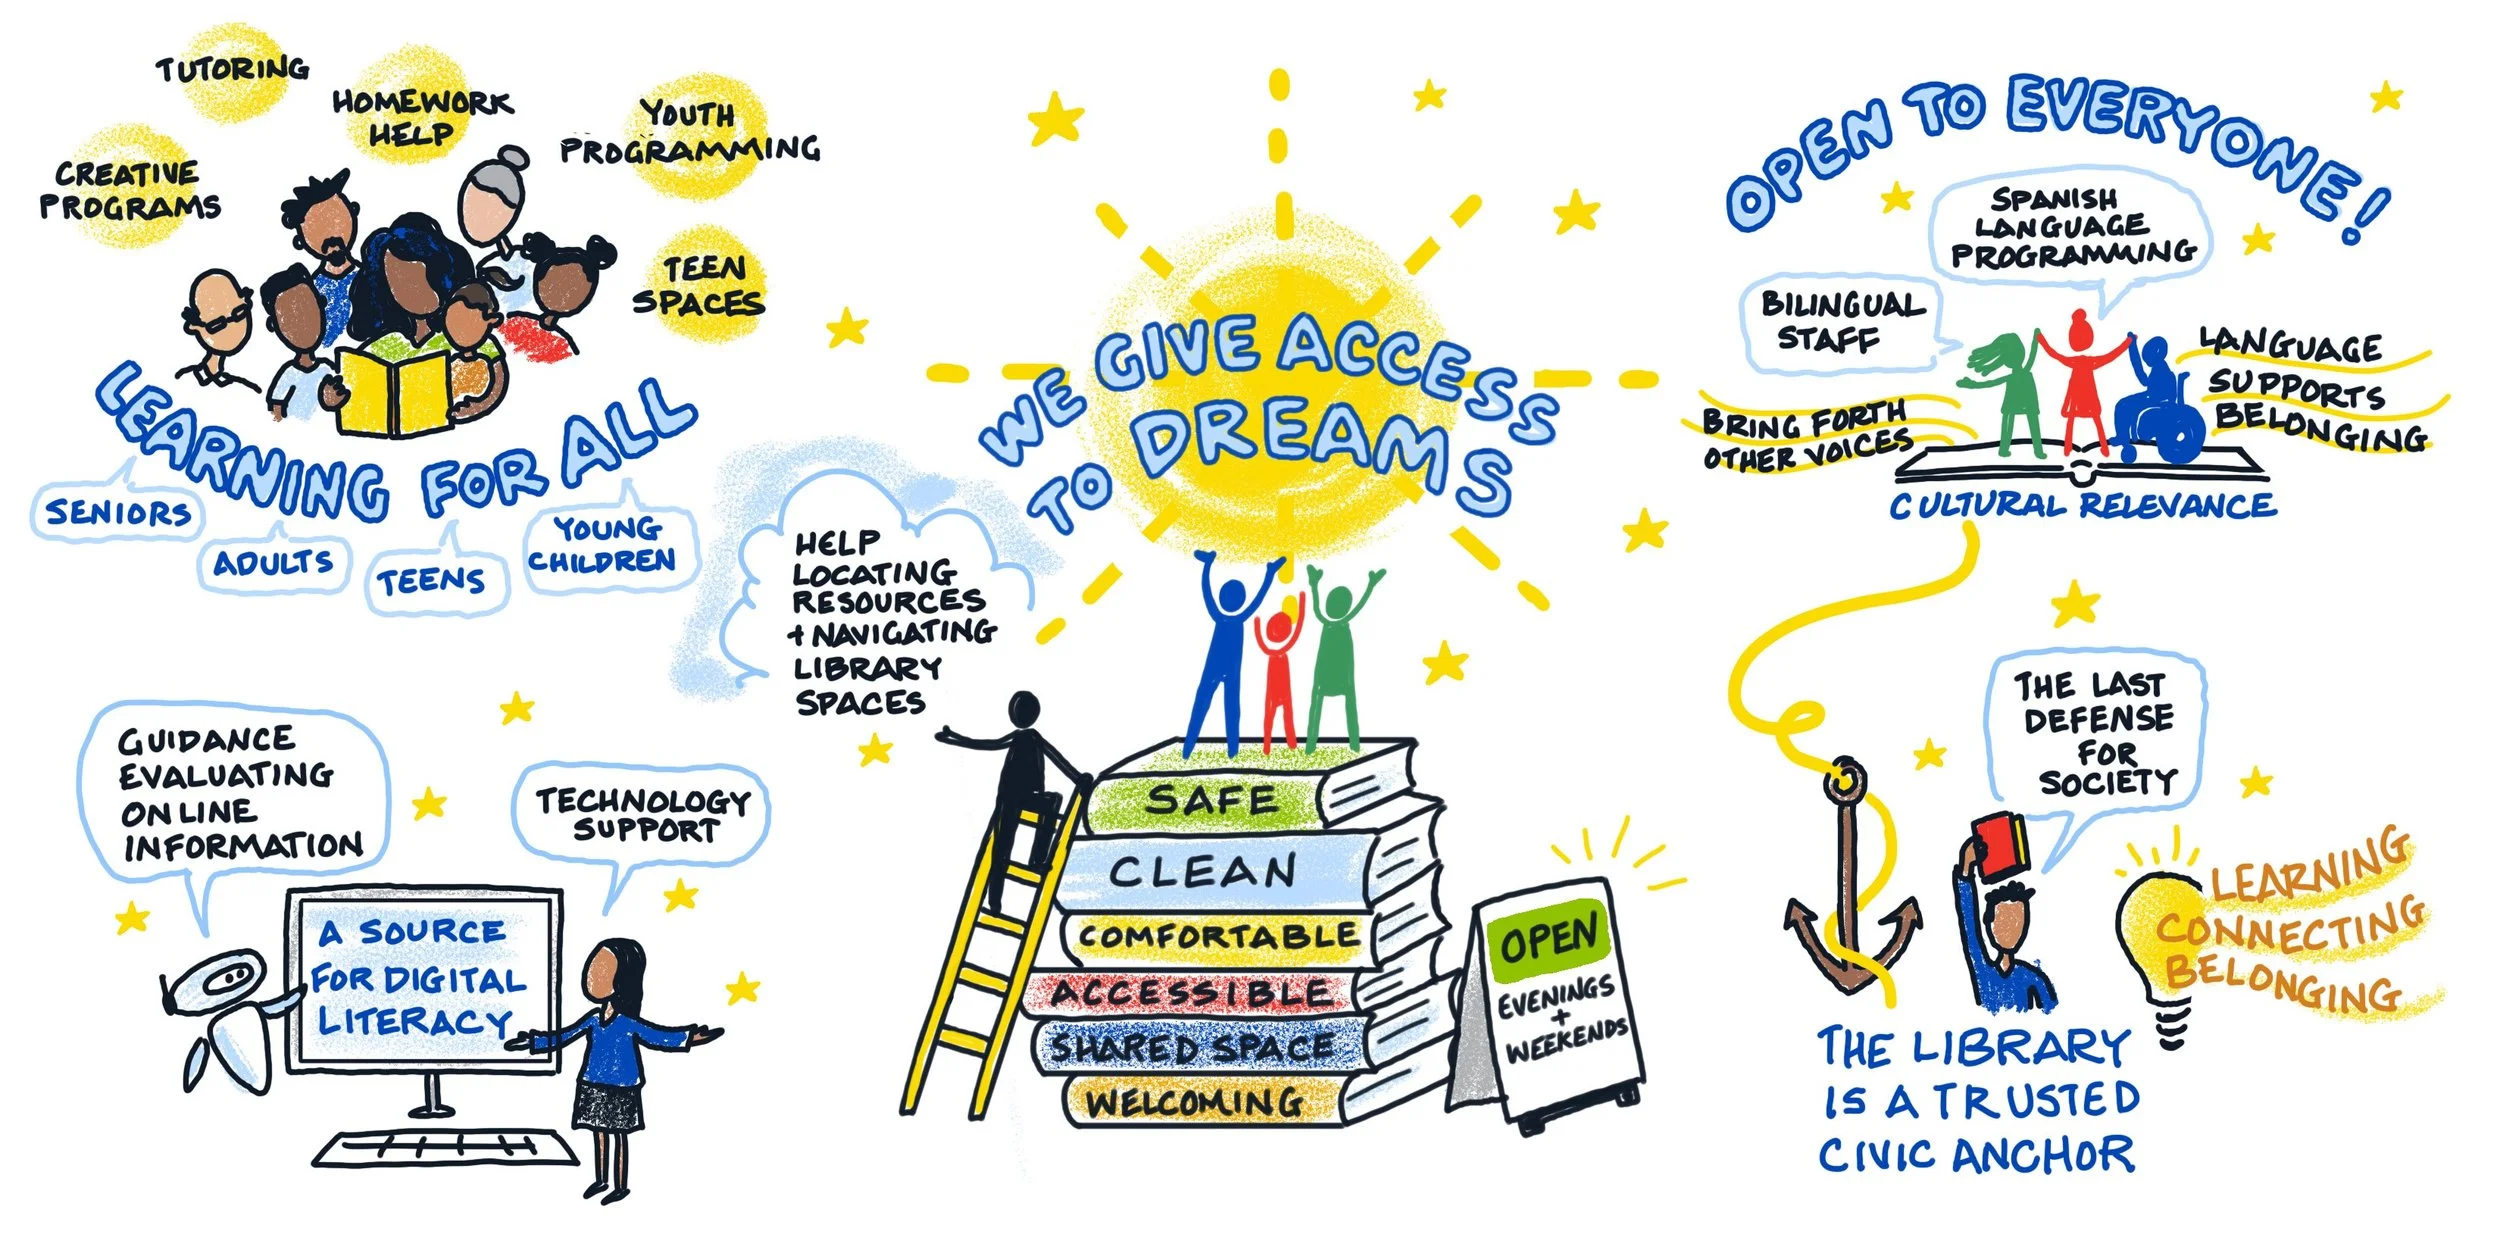 TUTORING
HOMEWORK
HELP
YOUTH
PROGRAMMING
CREATIVE
PROGRAMS
TEEN
SPACES
LEARNING FOR ALL
SENIORS
ADULTS
TEENS
YOUNG
CHILDREN
GUIDANCE
EVALUATING
ONLINE
INFORMATION
TECHNOLOGY
SUPPORT
A SOURCE
FOR DIGITAL
LITERACY
WE GIVE ACCESS
TO DREAMS
HELP
LOCATING
RESOURCES
+ NAVIGATING
LIBRARY
SPACES
SAFE
CLEAN
COMFORTABLE
ACCESSIBLE
SHARED SPACE
WELCOMING
OPEN
EVENINGS
+
WEEKENDS
OPEN TO EVERYONE!
SPANISH
LANGUAGE
PROGRAMMING
BILINGUAL
STAFF
BRING FORTH
OTHER VOICES
LANGUAGE
SUPPORTS
BELONGING
CULTURAL RELEVANCE
THE LAST
DEFENSE
FOR
SOCIETY
LEARNING
CONNECTING
BELONGING
THE LIBRARY
IS A TRUSTED
CIVIC ANCHOR